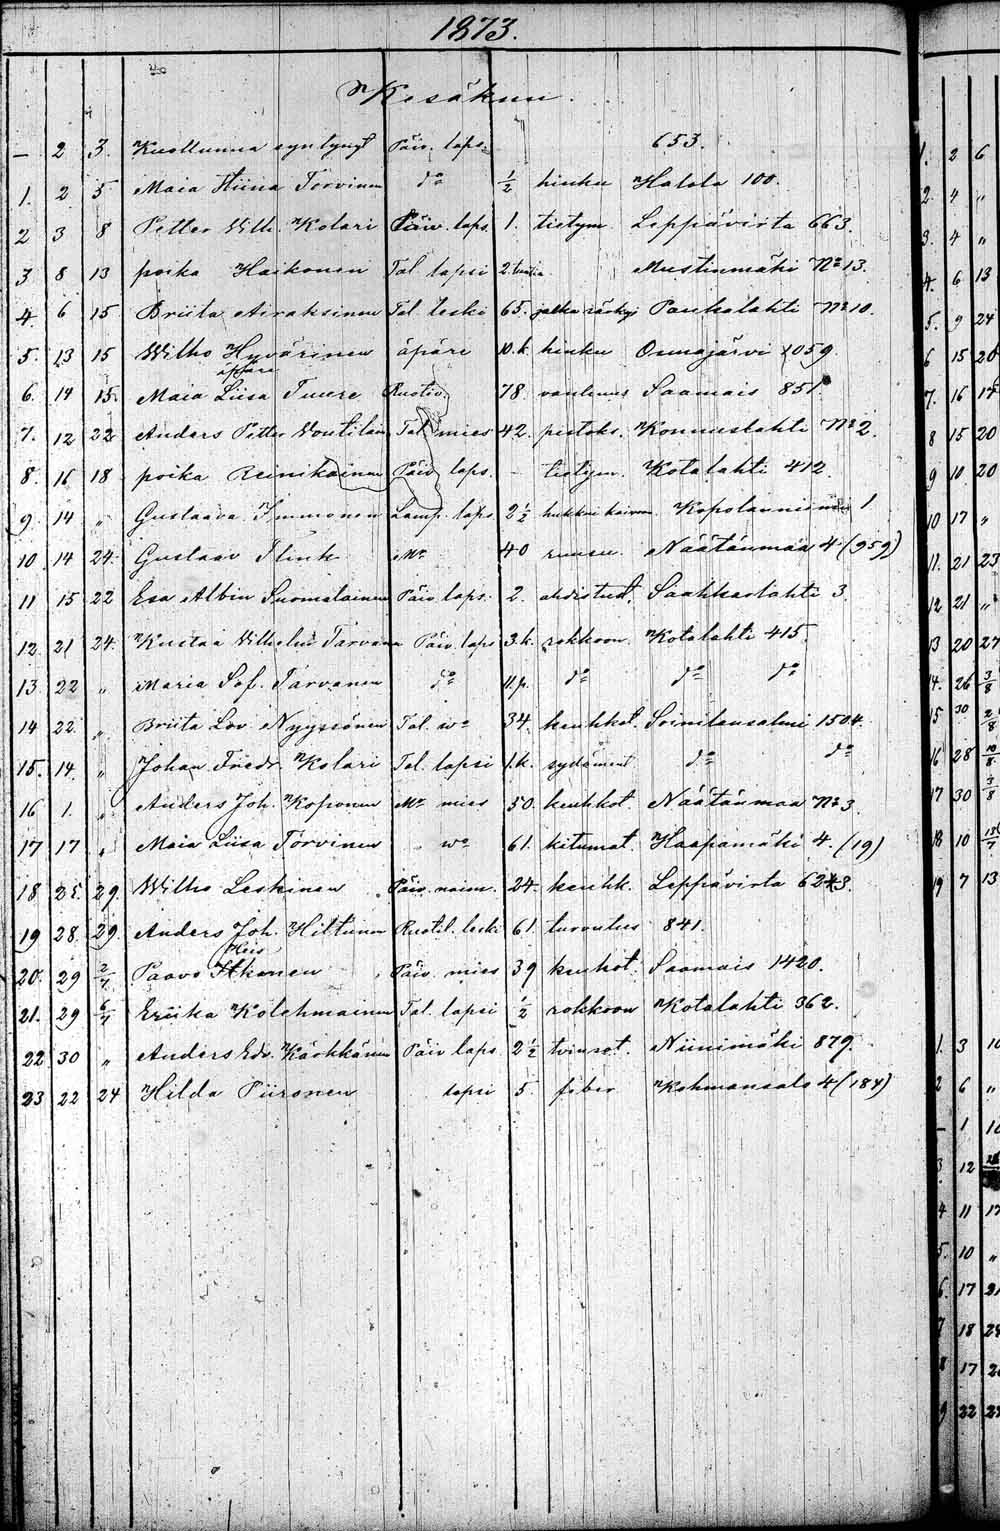 1873.
Kesäkuu.
— 2 3. Kuolluena syntynyt Päiv. laps. 653.
1. 2 5 Maia Stiina Torvinen do 1/2 hinku Halola 100.
2 3 8 Petter Vilh. Kolari Päiv. laps. 1. tietym. Leppävirta 663.
3 8 13 poika Haikonen Tal. lapsi 2. tuntia Mustinmäki No 13.
4. 6 15 Briita Airaksinen Tal. leski 65. jalka särky Paukalahti No 10.
5. 13 15 Wilho Hyvärinen äpäre 10.k. hinku Osmajärvi 1059.
äpäre
6. 14 15. Maia Liisa Tuure Ruotiv. 78 vanhuus Saamais 851.
7. 12 22 Anders Petter Voutilain Tal. mies 42. pistoks. Konnuslahti No 2.
8. 16 18 poika Reinikainen Päiv laps. - tietym. Kotalahti 412.
9. 14 " Gustaava Immonen Lamp. laps 2 1/2 Kopolanniemi 1
10. 14 24. Gustaav Flink Mr 40 ruusu Näätänmaa 4. (959)
11 15 22 Esa Albin Suomalainen Päiv. laps. 2. ahdistust. Saahkarlahti 3.
12. 21 24. Kustaa Vilhelm Tarvanen Päiv. laps 3.k. rokkoon Kotalahti 415.
13. 22 " Maria Sof. Tarvanen do 11.p. do do do
14 22 " Briita Lov. Nyyssönen Tal. wo 34. keuhkot. Soinilansalmi 1504.
15. 14. " Johan Fredr. Kolari Tal. lapsi 1.k. sydament do do
16 1. " Anders Joh. Koponen Mr mies 50. keuhkot Näätänmaa No 3.
17 17 " Maia Liisa Torvinen wo 61. kitumat. Haapamäki 4. (19)
18 25. 29. Wilho Leskinen Päiv. naim. 24. keuhk. Leppävirta
19 28. 29. Anders Joh. Hiltunen Ruotil. leski 61. turvutus 841.
20. 29 2/7 Paavo Itkonen Päiv. mies 39 keuhkot. Saamais 1420.
21. 29 6/7 Eriika Kolehmainen Tal. lapsi 1/2 rokkoon Kotalahti 362.
22 30 " Anders Edv. Kärkkänen Päiv laps 2 1/2 tvinsot. Niinimäki 879.
23 22 24 Hilda Piironen lapsi 5. fiber Kohmansalo 4 (184)
1. 2 6
2. 4 "
3. 4 "
4. 6 13
5. 9 24
6 15 20
7. 16 17
8 15 20
9 10 20
10 17 "
11. 21 23
12 21 "
13 20 27
14. 26 3/8
15 30 2/8
16 28 10/8
17 30 3/8
18 10
19 7 13
1. 3 10
2 6 "
– 1 10
3 12
4 11 17
5. 10 "
6. 17 21
7 18 24
8 17
9 22